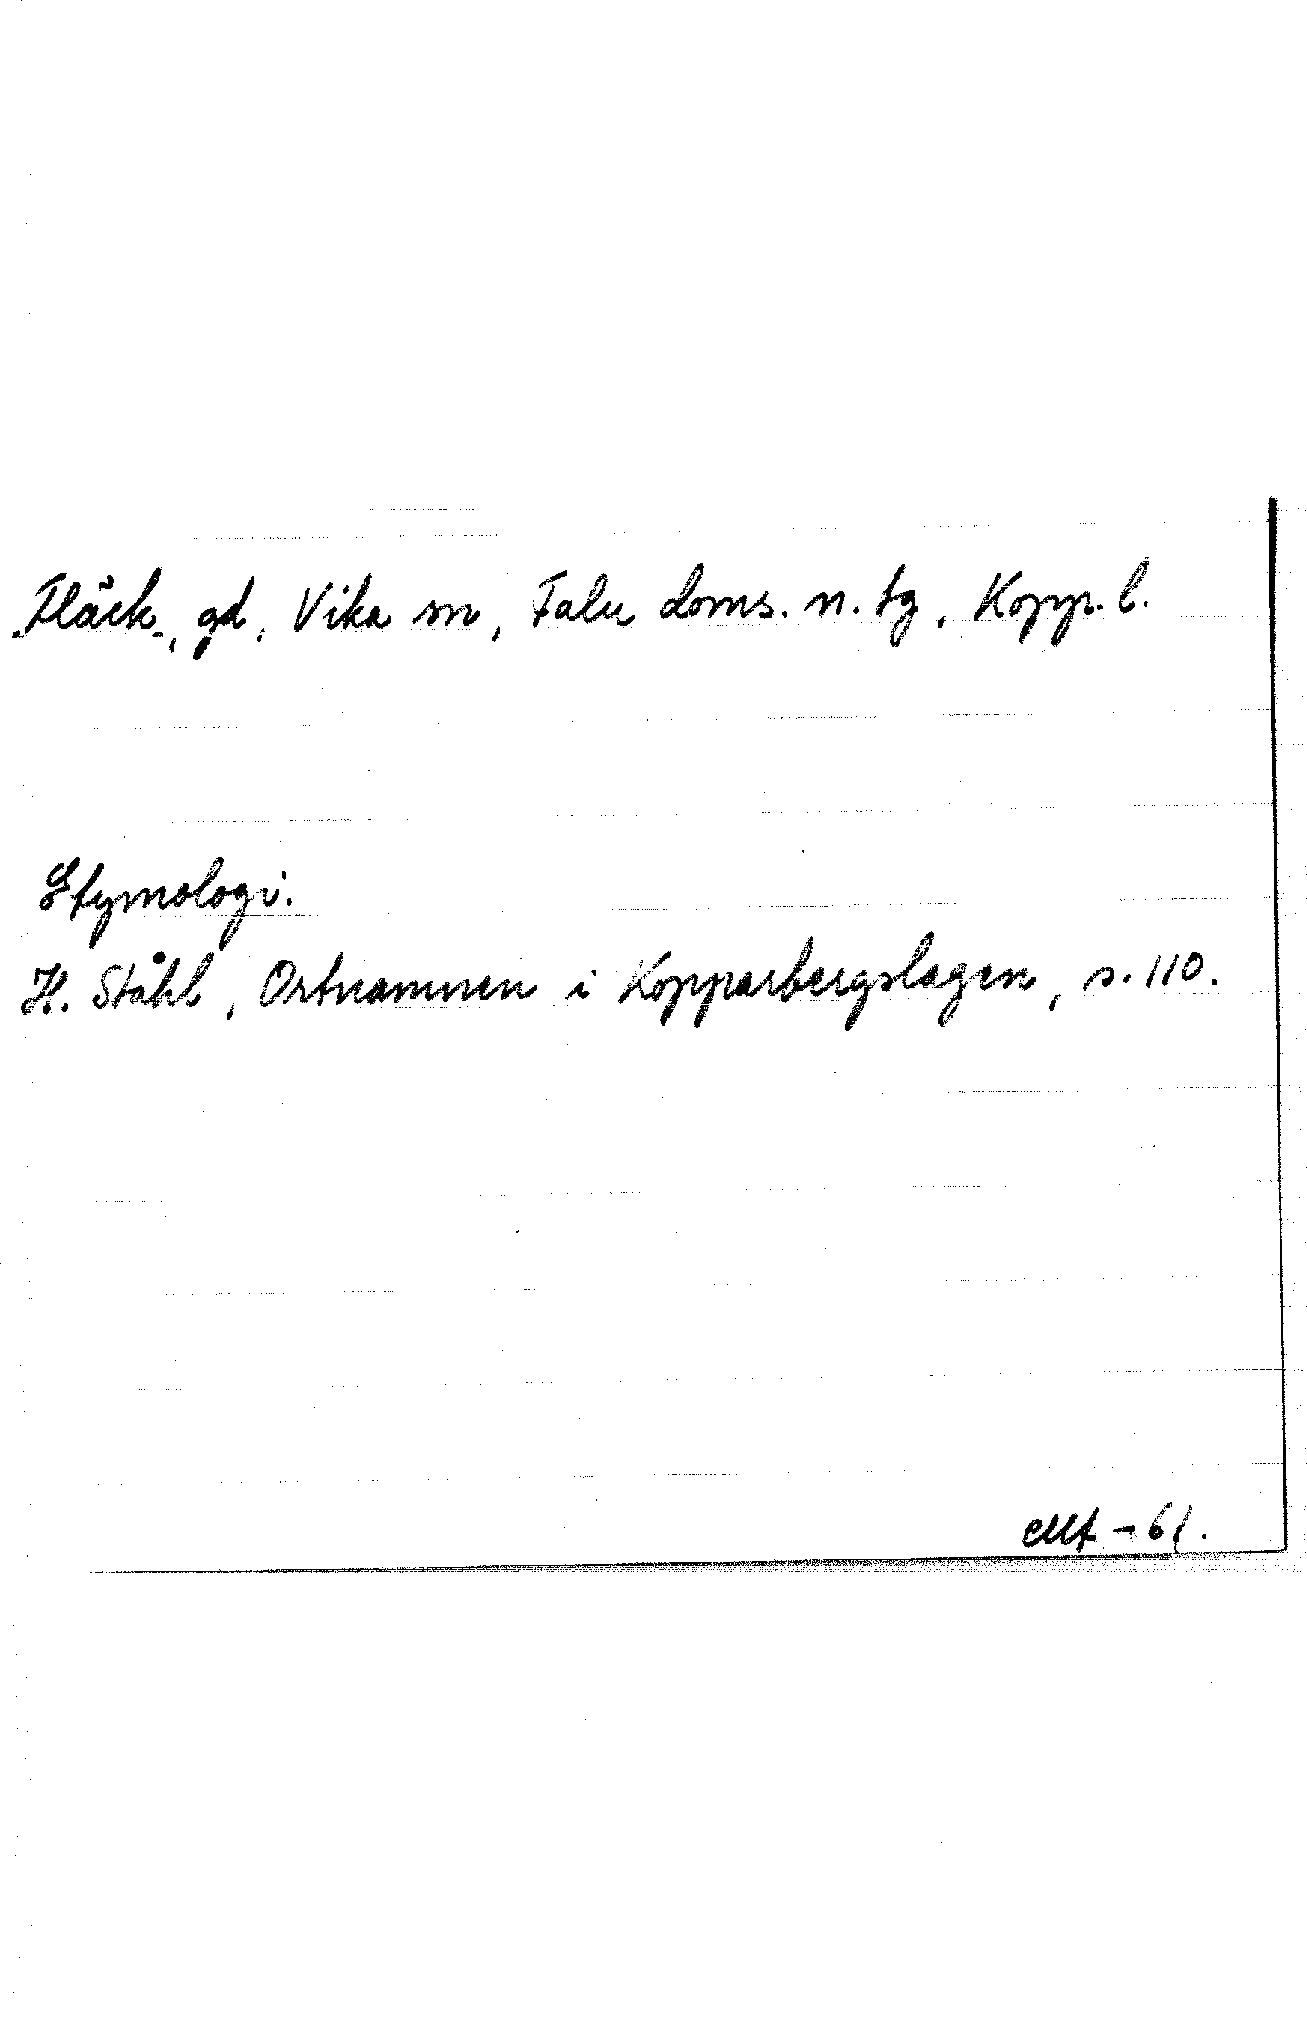 Fläck, gd, Vika sn, Falu doms. n. tg, Kopp. l.
Etymologi.
H. Ståhl, Ortnamnen i Kopparbergslagen, s. 110.
-61.